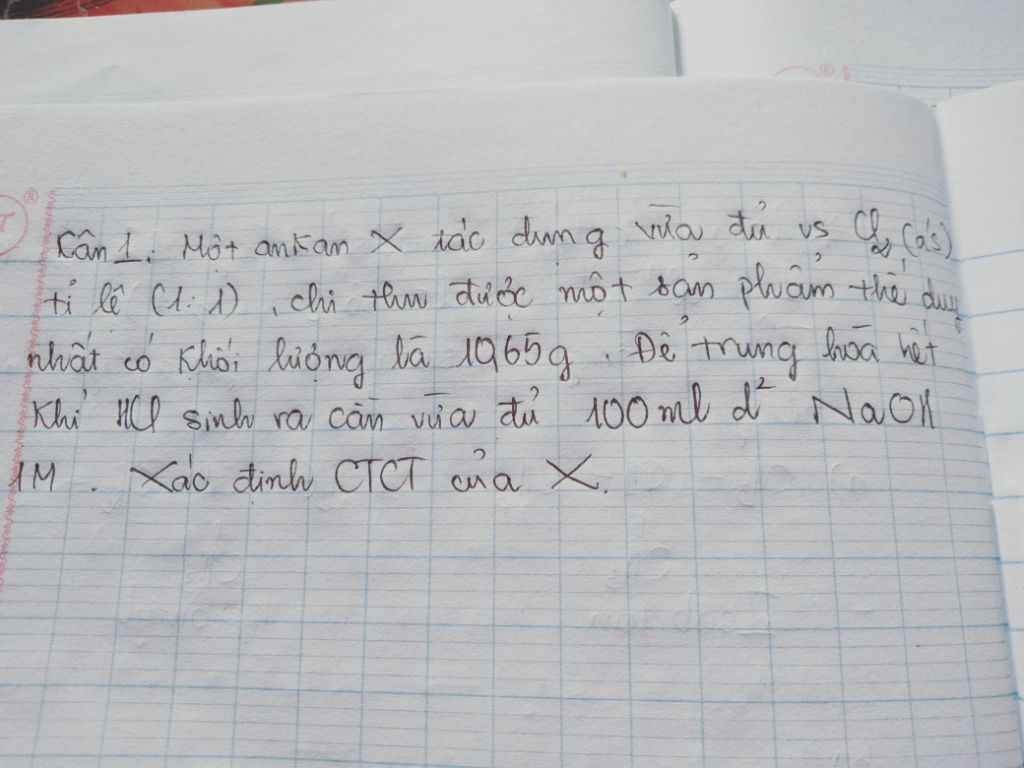 Câu 1: Một ankan X tác dụng vừa đủ vs Cl2 (a's)
tỉ lệ (1:1), chỉ thu được một sản phẩm thế duy
nhất có khối lượng là 10,65g. Để trung hòa hết
khí HCl sinh ra cần vừa đủ 100ml d² NaOH
1M. Xác định CTCT của X.